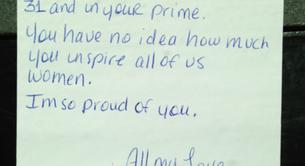 31 and in your prime.
You have no idea how much
you inspire all of us
women.
I'm so proud of you.
All my love